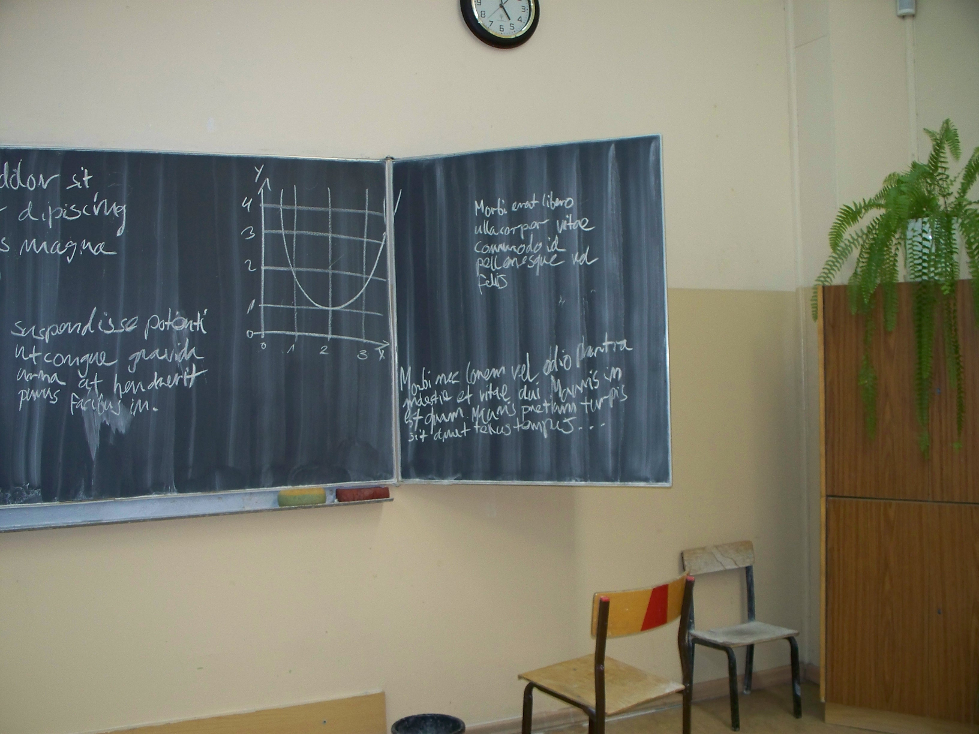 ddor sit
dipiscing
s magna
suspendisse potenti
ut congue gravida
urna at hendrerit
purus facibus in.
Y
4
3
2
1
0
0 1 2 3 X
Morbi erat libero
ullacorpor vitae
commodo id
pellenesque vel
felis
Morbi nec lorem vel odio pharetra
molestie et vitae dui. Mauris in
et quam. Mauris pretium turpis
sit amet tellus tempus...